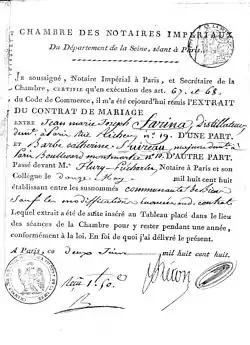 CHAMBRE DES NOTAIRES IMPÉRIAUX
Du Département de la Seine, séant à Paris.
JE soussigné, Notaire Impérial à Paris, et Secrétaire de la
Chambre, CERTIFIE qu'en exécution des art. 67. et 68.
du Code de Commerce, il m'a été cejourd'hui remis l'EXTRAIT
DU CONTRAT DE MARIAGE
ENTRE Jean marie Joseph Farina, distillateur
demt. à paris Rue n° 19. D'UNE PART.
ET Barbe catherine majeure demt. à
paris Boulevard montmartre n° 10. D'AUTRE PART.
Passé devant M.e Notaire à Paris et son
Collègue le Douze May mil huit cent huit
établissant entre les susnommés communauté de bien
sauf les modifications contrat
Lequel extrait a été de suite inséré au Tableau placé dans le lieu
des séances de la Chambre pour y rester pendant une année,
conformément à la loi. En foi de quoi j'ai délivré le présent.
A Paris, ce Deux Juin mil huit cent huit.
Reçu 1f 50.